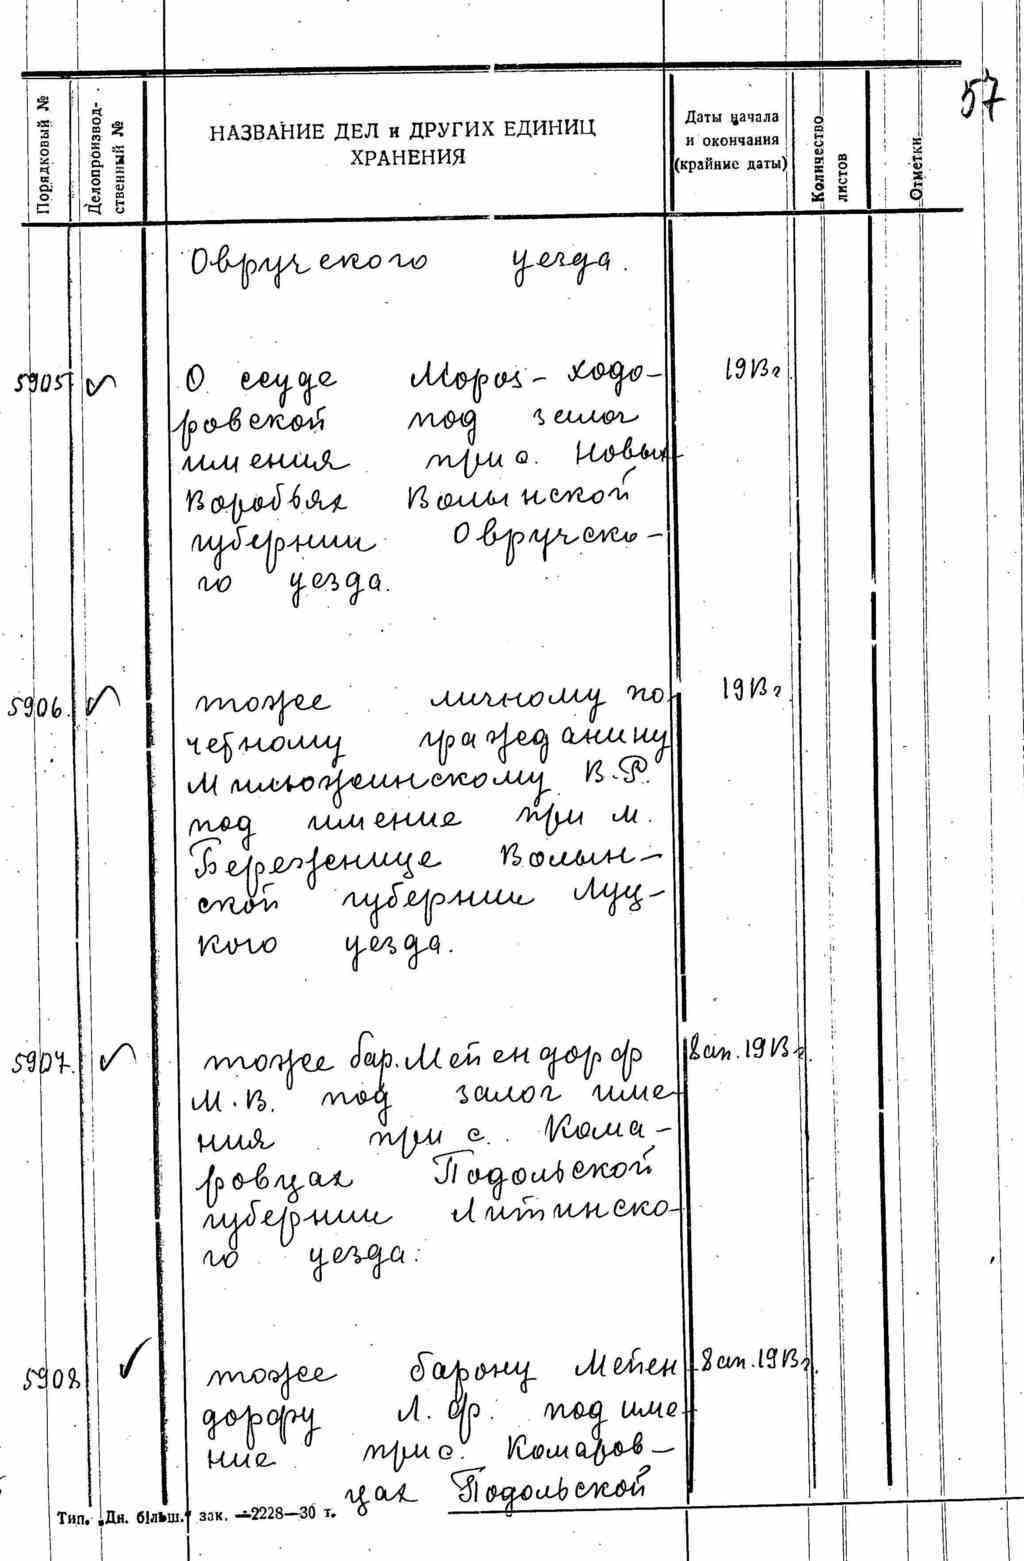 57
Порядковый №
Делопроизвод-
ственный №
НАЗВАНИЕ ДЕЛ и ДРУГИХ ЕДИНИЦ
ХРАНЕНИЯ
Даты начала
и окончания
(крайние даты)
Количество
листов
Отметки
Овручского уезда.
5905 О ссуде Мороз-ходо- 1913 г
ровской под залог
имения при с. Новых
Воробьях Волынской
губернии Овручско-
го уезда.
5906. тоже личному по- 1913 г
четному гражданину
В.Р.
под имение при м.
Бережнице Волын-
ской губернии Луц-
кого уезда.
5907. тоже бар. Мейендорф 8 ап. 1913 г.
М.В. под залог име-
ния при с. Кома-
ровцах Подольской
губернии Литинско-
го уезда.
5908 тоже барону Мейен- 8 ап. 1913 г.
дорфу Л.Ф. под име-
ние при с. Комаров-
цах Подольской
Тип. „Дн. більш." зак. —2228—30 т.